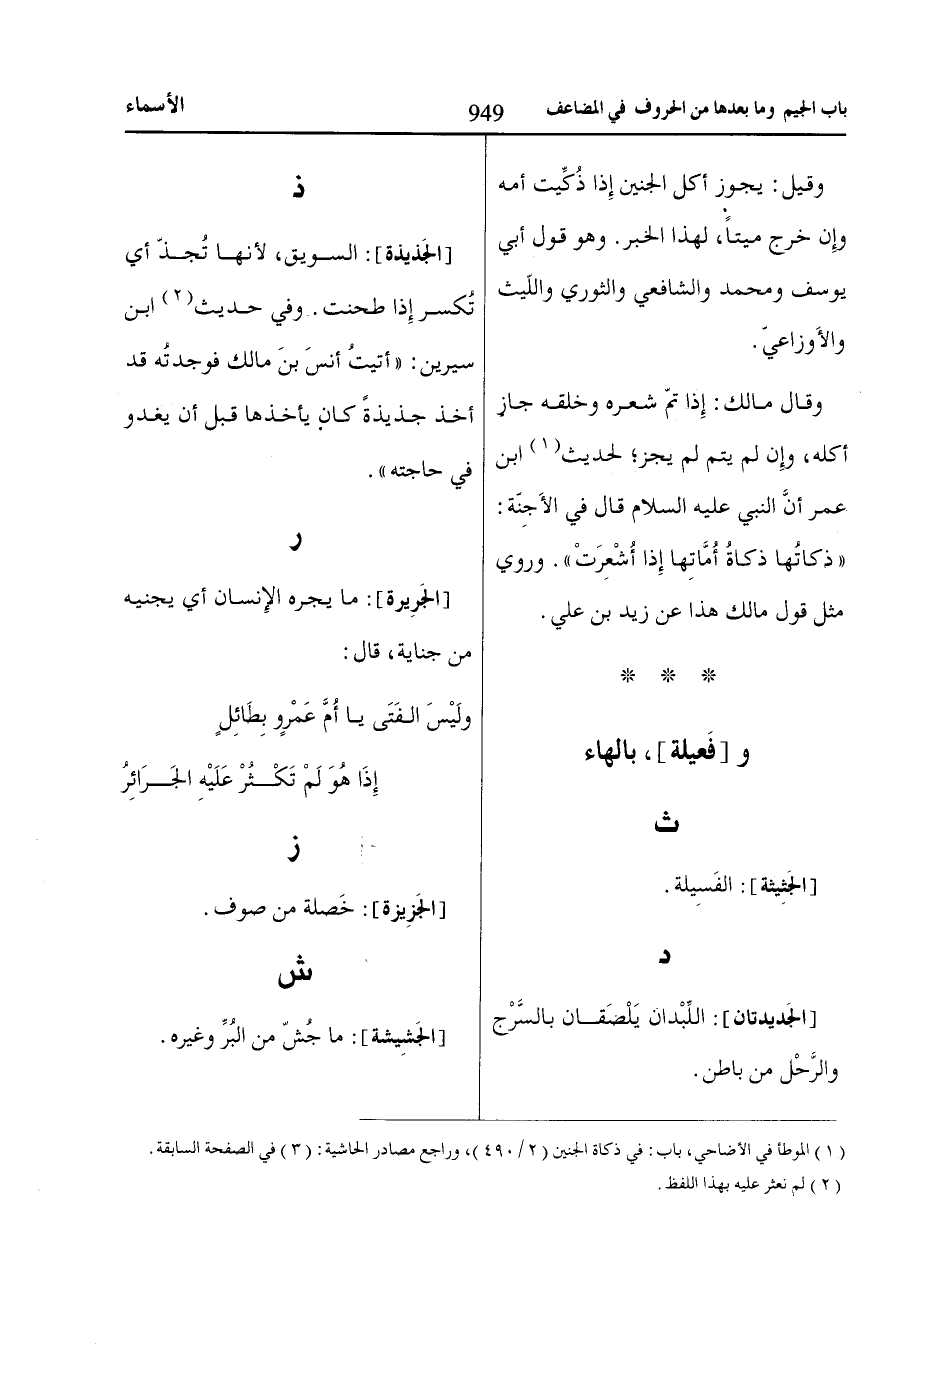 باب الجيم وما بعدها من الحروف في المضاعف
949
الأسماء
وقيل: يجوز أكل الجنين إذا ذُكِّيت أمه
وإن خرج ميتاً، لهذا الخبر. وهو قول أبي
يوسف ومحمد والشافعي والثوري واللّيث
والأَوزاعيّ.
وقال مالك: إذا تمّ شعره وخلقه جاز
أكله، وإن لم يتم لم يجز؛ لحديث(١) ابن
عمر أنَّ النبي عليه السلام قال في الأَجِنّة:
«ذكاتُها ذكاةُ أُمَّاتِها إذا أُشْعِرَتْ». وروي
مثل قول مالك هذا عن زيد بن علي.
* * *
و [فَعيلة]، بالهاء
ث
[الجَثِيثة]: الفَسِيلة.
د
[الجَديدتان]: اللِّبْدان يَلْصَقَـان بالسَّرْج
والرَّحْل من باطن.
ذ
[الجَذيذة]: السـويق، لأنهـا تُجـذّ أي
تُكسـر إذا طحنت. وفي حـديث(٢) ابن
سيرين: «أتيتُ أنسَ بنَ مالك فوجدتُه قد
أخذ جذيذةً كان يأخذها قبل أن يغدو
في حاجته».
ر
[الجَرِيرة]: ما يجره الإنسان أي يجنيه
من جناية، قال:
ولَيْسَ الفَتَى يا أُمَّ عَمْرٍو بِطَائِلٍ
إِذَا هُوَ لَمْ تَكْثُرْ عَلَيْهِ الجَـرَائِرُ
ز
[الجَزِيزة]: خَصلة من صوف.
ش
[الجَشِيشة]: ما جُشّ من البُرِّ وغيره.
(١) الموطأ في الأضاحي، باب: في ذكاة الجنين (٢/ ٤٩٠)، وراجع مصادر الحاشية: (٣) في الصفحة السابقة.
(٢) لم نعثر عليه بهذا اللفظ.